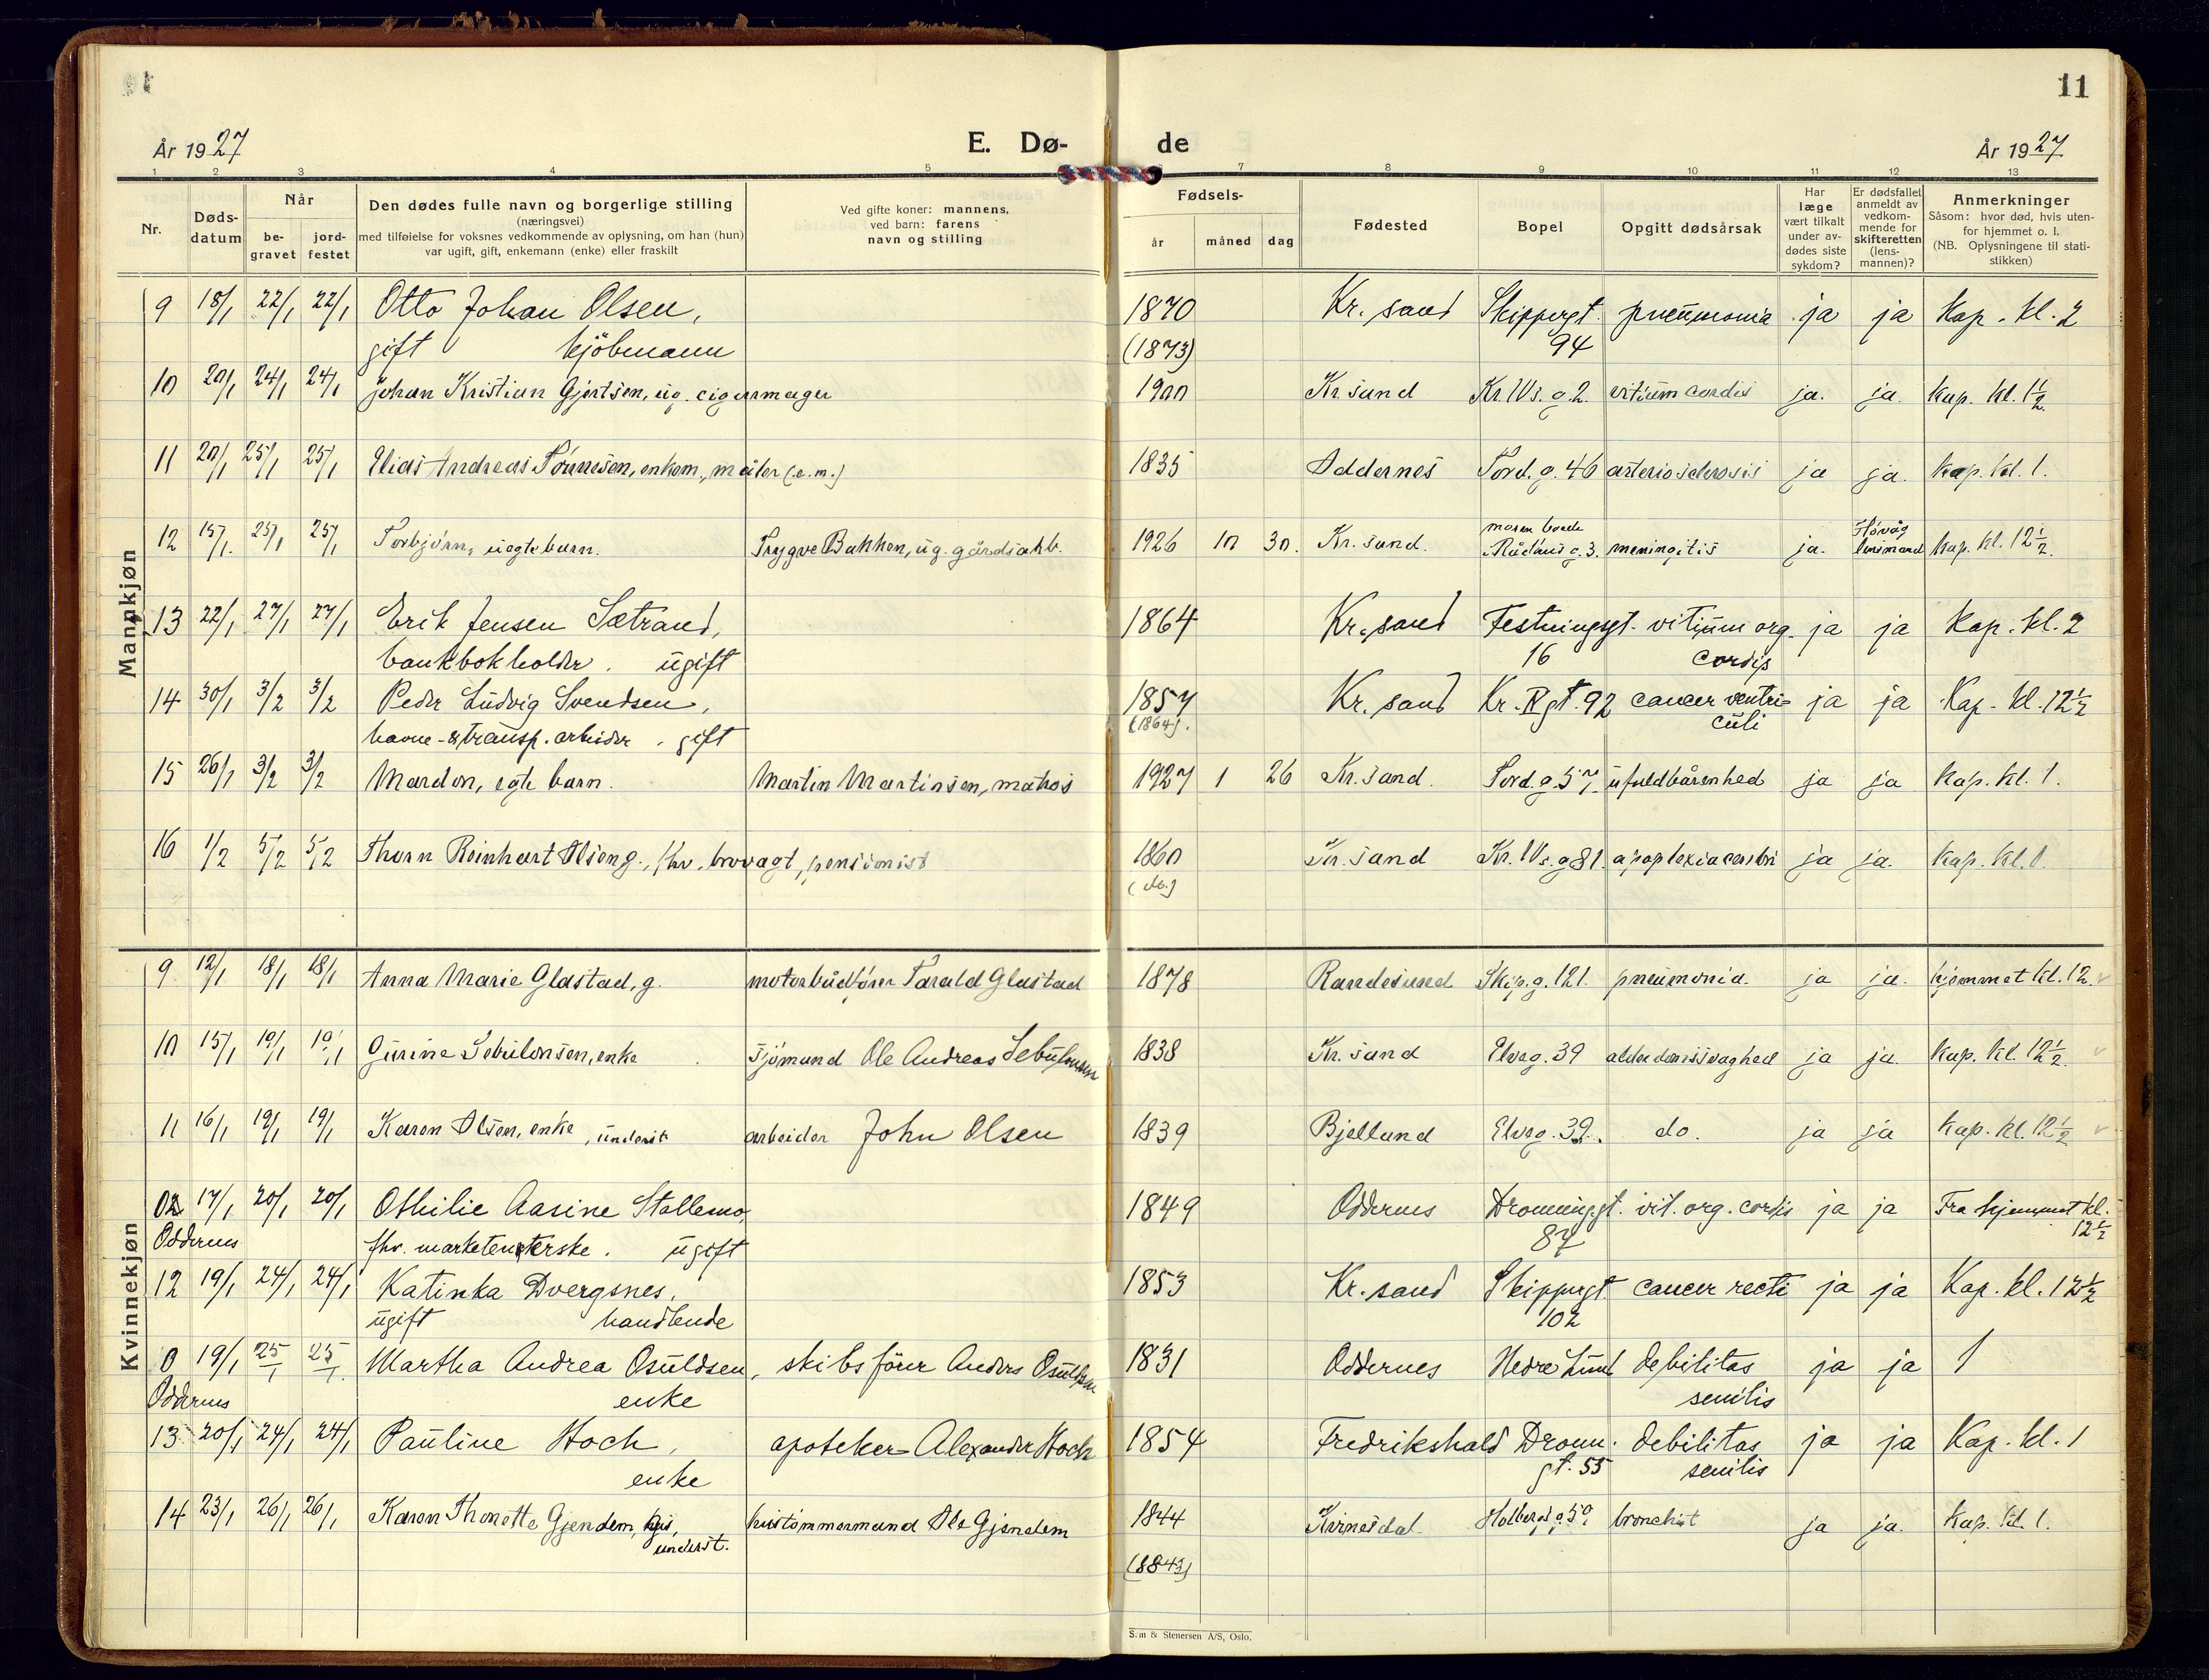 11
År 1927
E. Dø-
de
År 1927
1 2 3 4 5 6 7 8 9 10 11 12 13
Nr.
Døds-
datum
Når
be-
gravet
jord-
festet
Den dødes fulle navn og borgerlige stilling
(næringsvei)
med tilføielse for voksnes vedkommende av oplysning, om han (hun)
var ugift, gift, enkemann (enke) eller fraskilt
Ved gifte koner: mannens,
ved barn: farens
navn og stilling
Fødsels-
år måned dag
Fødested
Bopel
Opgitt dødsårsak
Har
læge
vært tilkalt
under av-
dødes siste
sykdom?
Er dødsfallet
anmeldt av
vedkom-
mende for
skifteretten
(lens-
mannen)?
Anmerkninger
Såsom: hvor død, hvis uten-
for hjemmet o. l.
(NB. Oplysningene til stati-
stikken)
Mannkjøn
9 18/1 22/1 22/1 Otto Johan Olsen, 1870 Kr. sand Skippergt. pneumonia ja ja Kap. kl. 2
gift kjöbmann (1873) 94
10 20/1 24/1 24/1 Johan Kristian Gjertsen, ug. cigarmager 1900 Kr. sand Kr. IVs. g. 2. vitium cordis ja. ja. Kap. kl. 1½
11 20/1 25/1 25/1 Elias Andreas Tönnesen, enkem., maler (e.m.) 1835 Oddernes Tord. g. 46 arteriosclerosis ja ja. Kap. kl. 1.
12 15/1. 25/1 25/1 Torbjörn, uegte barn. Trygve Bakken, ug. gårdsarb. 1926 10 30. Kr. sand. moren boede Rådhus g. 3. meningitis ja. Høvåg lensmand Kap. kl. 12½.
13 22/1 27/1 27/1 Erik Jensen Sætrand, 1864 Kr. sand Festningsgt. vitium org. ja ja Kap. kl. 2
bankbokholder. ugift 16 cordis
14 30/1 3/2 3/2 Peder Ludvig Svendsen, 1857 Kr. sand Kr. IV gt. 92 cancer ventri- ja ja Kap. kl. 12½
havne- & transp. arbeider. gift (1864). culi
15 26/1 3/2 3/2 Mardon, egte barn. Martin Martinsen, matros 1927 1 26 Kr. sand. Tord. g. 57. ufuldbårenhed ja ja Kap. kl. 1.
16 1/2 5/2 5/2 Thorn Reinhart Olsen g., fhv. brovagt, pensionist 1860 Kr. sand Kr. IVs. g 81. apoplexia cerebri ja ja. Kap. kl. 1.
(do.)
Kvinnekjøn
9 12/1 18/1 18/1 Anna Marie Glastad, g. motorbådfører Tarald Glastad 1878 Randesund Skip. g. 121. pneumonia. ja ja. hjemmet kl. 12.
10 15/1 19/1 19/1 Gurine Sebulonsen, enke sjömand Ole Andreas Sebulonsen 1838 Kr. sand Elveg. 39 alderdomssvaghed ja ja. Kap. kl. 12½.
11 16/1 19/1 19/1 Karen Olsen, enke, underst. arbeider John Olsen 1839 Bjelland Elveg. 39. do. ja ja Kap. kl. 12½
0 17/1 20/1 20/1 Othilie Aasine Stallemo, 1849 Oddernes Dronningsgt. vit. org. cordis ja ja Fra hjemmet kl.
Oddernes fhv. marketenterske. ugift 87 12½
12 19/1 24/1 24/1 Katinka Dvergsnes, 1853 Kr. sand Skippergt. cancer recti ja ja Kap. kl. 12½
ugift handlende 102
0 19/1 25/1 25/1 Martha Andrea Osuldsen, skibsförer Anders Osuldsen 1831 Oddernes Nedre Lund debilitas ja ja 1
Oddernes enke senilis
13 20/1 24/1 24/1 Pauline Hoch, apoteker Alexander Hoch 1854 Fredrikshald Dronn. debilitas ja ja Kap. kl. 1
enke gt. 55 senilis
14 23/1 26/1 26/1 Karen Thonette Gjendem, underst. hustømmermand Ole Gjendem 1844 Kvinesdal Holbergs g. 50. bronchit ja ja. Kap. kl. 1.
(1843)
S.m & Stenersen A/S, Oslo.